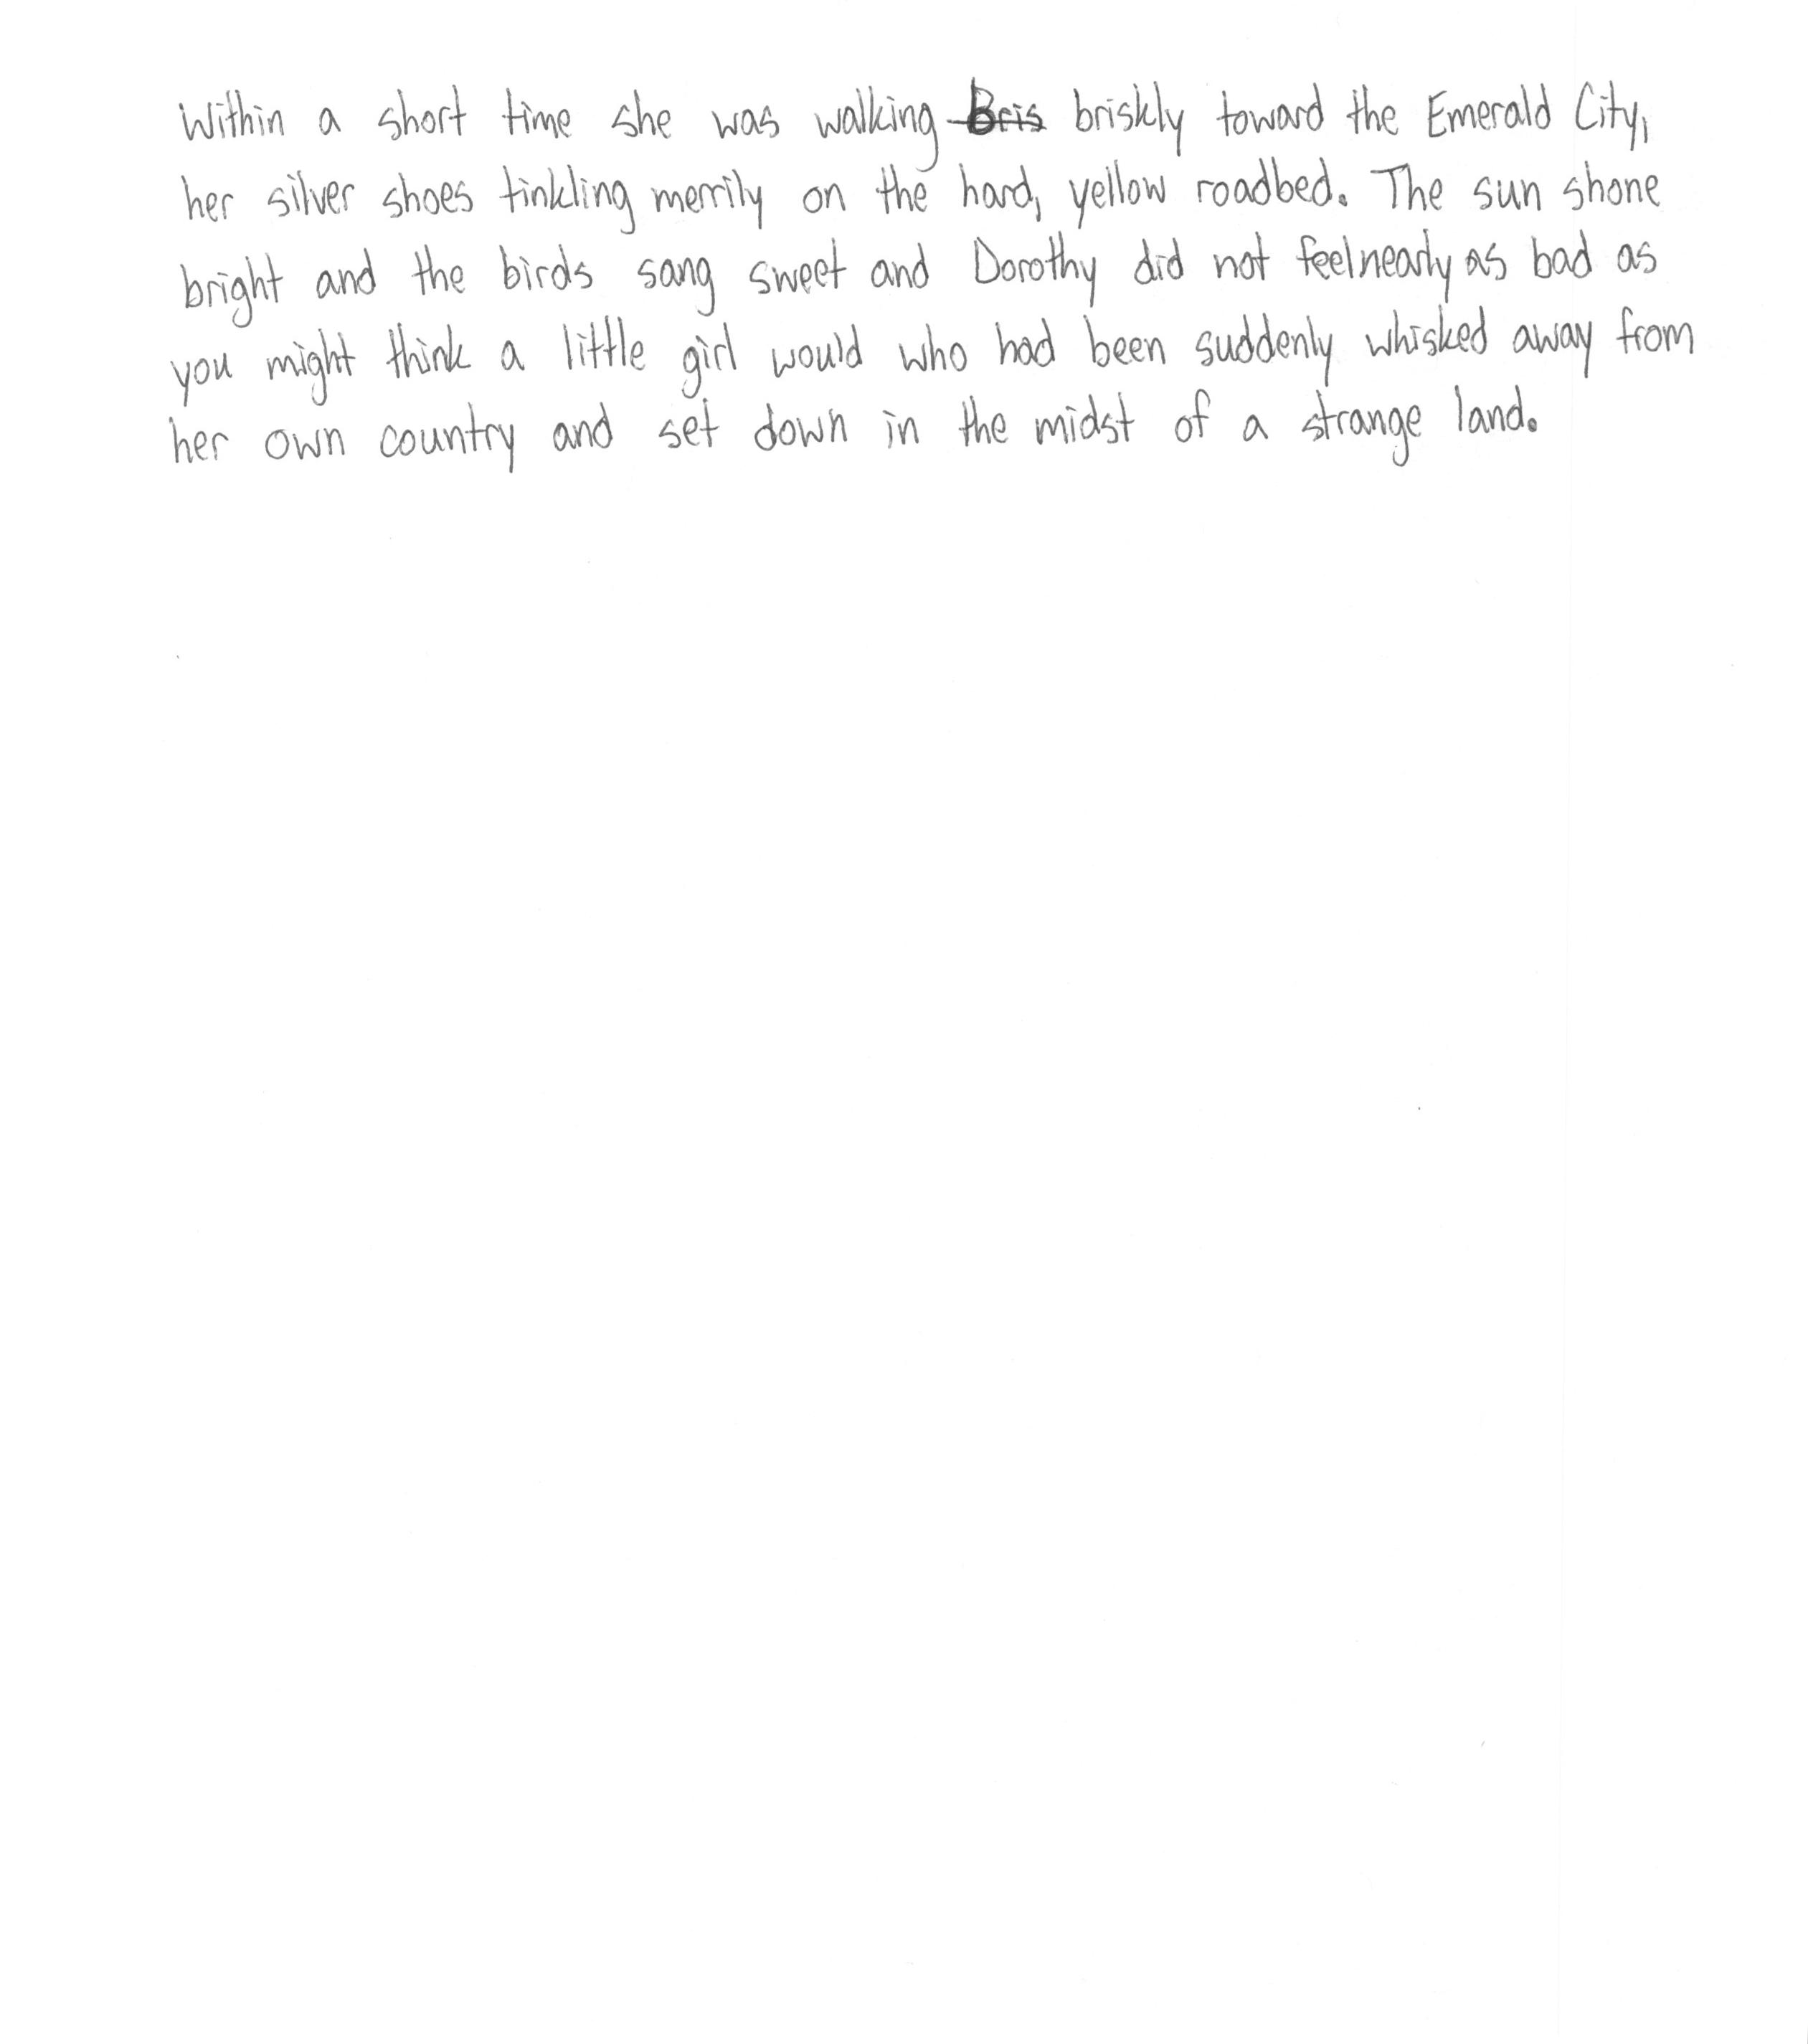 Within a short time she was walking Bris briskly toward the Emerald City,
her silver shoes tinkling merrily on the hard, yellow roadbed. The sun shone
bright and the birds sang sweet and Dorothy did not feel nearly as bad as
you might think a little girl would who had been suddenly whisked away from
her own country and set down in the midst of a strange land.